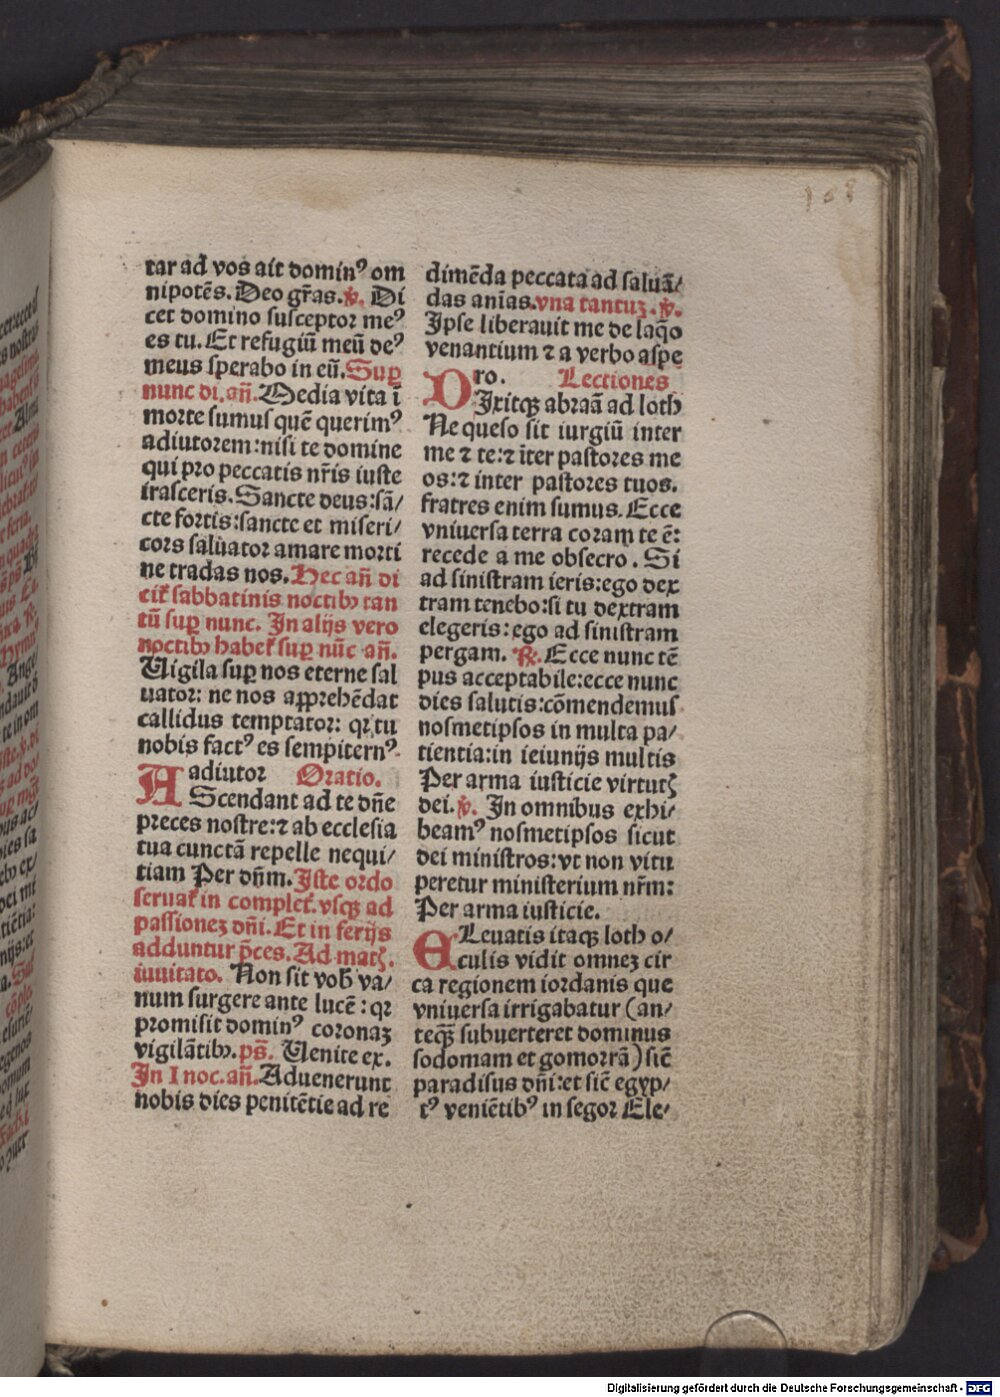 108
tar ad vos ait dominꝰ om
nipotēs. Deo gr̄as. ꝟ. Di
cet domino susceptor meꝰ
es tu. Et refugiū meū deꝰ
meus sperabo in eū. Suꝑ
nunc di. an̄. Media vita ī
morte sumus quē querimꝰ
adiutorem: nisi te domine
qui pro peccatis nr̄is iuste
irasceris. Sancte deus: sā/
cte fortis: sancte et miseri/
cors saluator amare morti
ne tradas nos. Hec an̄ di
cit̄ sabbatinis noctibꝫ tan
tū suꝑ nunc. In alijs vero
noctibꝫ habet̄ suꝑ nūc an̄.
Uigila suꝑ nos eterne sal
uator: ne nos apprehēdat
callidus temptator: qꝛ tu
nobis factꝰ es sempiternꝰ.
adiutor Oratio.
AScendant ad te dn̄e
preces nostre: ⁊ ab ecclesia
tua cunctā repelle nequi/
tiam Per dn̄m. Iste ordo
seruat̄ in complet̄. vsqꝫ ad
passionez dn̄i. Et in ferijs
adduntur p̄ces. Ad matꝭ.
inuitato. Non sit vob̄ va/
num surgere ante lucē: qꝛ
promisit dominꝰ coronaꝫ
vigilātibꝫ. ps̄. Uenite ex.
In I noc. an̄. Aduenerunt
nobis dies penitētie ad re
dimēda peccata ad saluā/
das anīas. vna tantuꝫ. ꝟ.
Ipse liberauit me de laq̄o
venantium ⁊ a verbo aspe
ro. Lectiones
DIxitqꝫ abraā ad loth
Ne queso sit iurgiū inter
me ⁊ te: ⁊ īter pastores me
os: ⁊ inter pastores tuos.
fratres enim sumus. Ecce
vniuersa terra coram te ē:
recede a me obsecro. Si
ad sinistram ieris: ego dex
tram tenebo: si tu dextram
elegeris: ego ad sinistram
pergam. ℟. Ecce nunc tē
pus acceptabile: ecce nunc
dies salutis: cōmendemus
nosmetipsos in multa pa/
tientia: in ieiunijs multis
Per arma iusticie virtutꝭ
dei. ꝟ. In omnibus exhi/
beamꝰ nosmetipsos sicut
dei ministros: vt non vitu
peretur ministerium nr̄m:
Per arma iusticie.
ELeuatis itaqꝫ loth o/
culis vidit omneꝫ cir
ca regionem iordanis que
vniuersa irrigabatur (an/
teqꝫ̄ subuerteret dominus
sodomam et gomorrā) sic̄
paradisus dn̄i: et sic̄ egyp/
tꝰ veniētibꝰ in segor Ele/
Digitalisierung gefördert durch die Deutsche Forschungsgemeinschaft - DFG